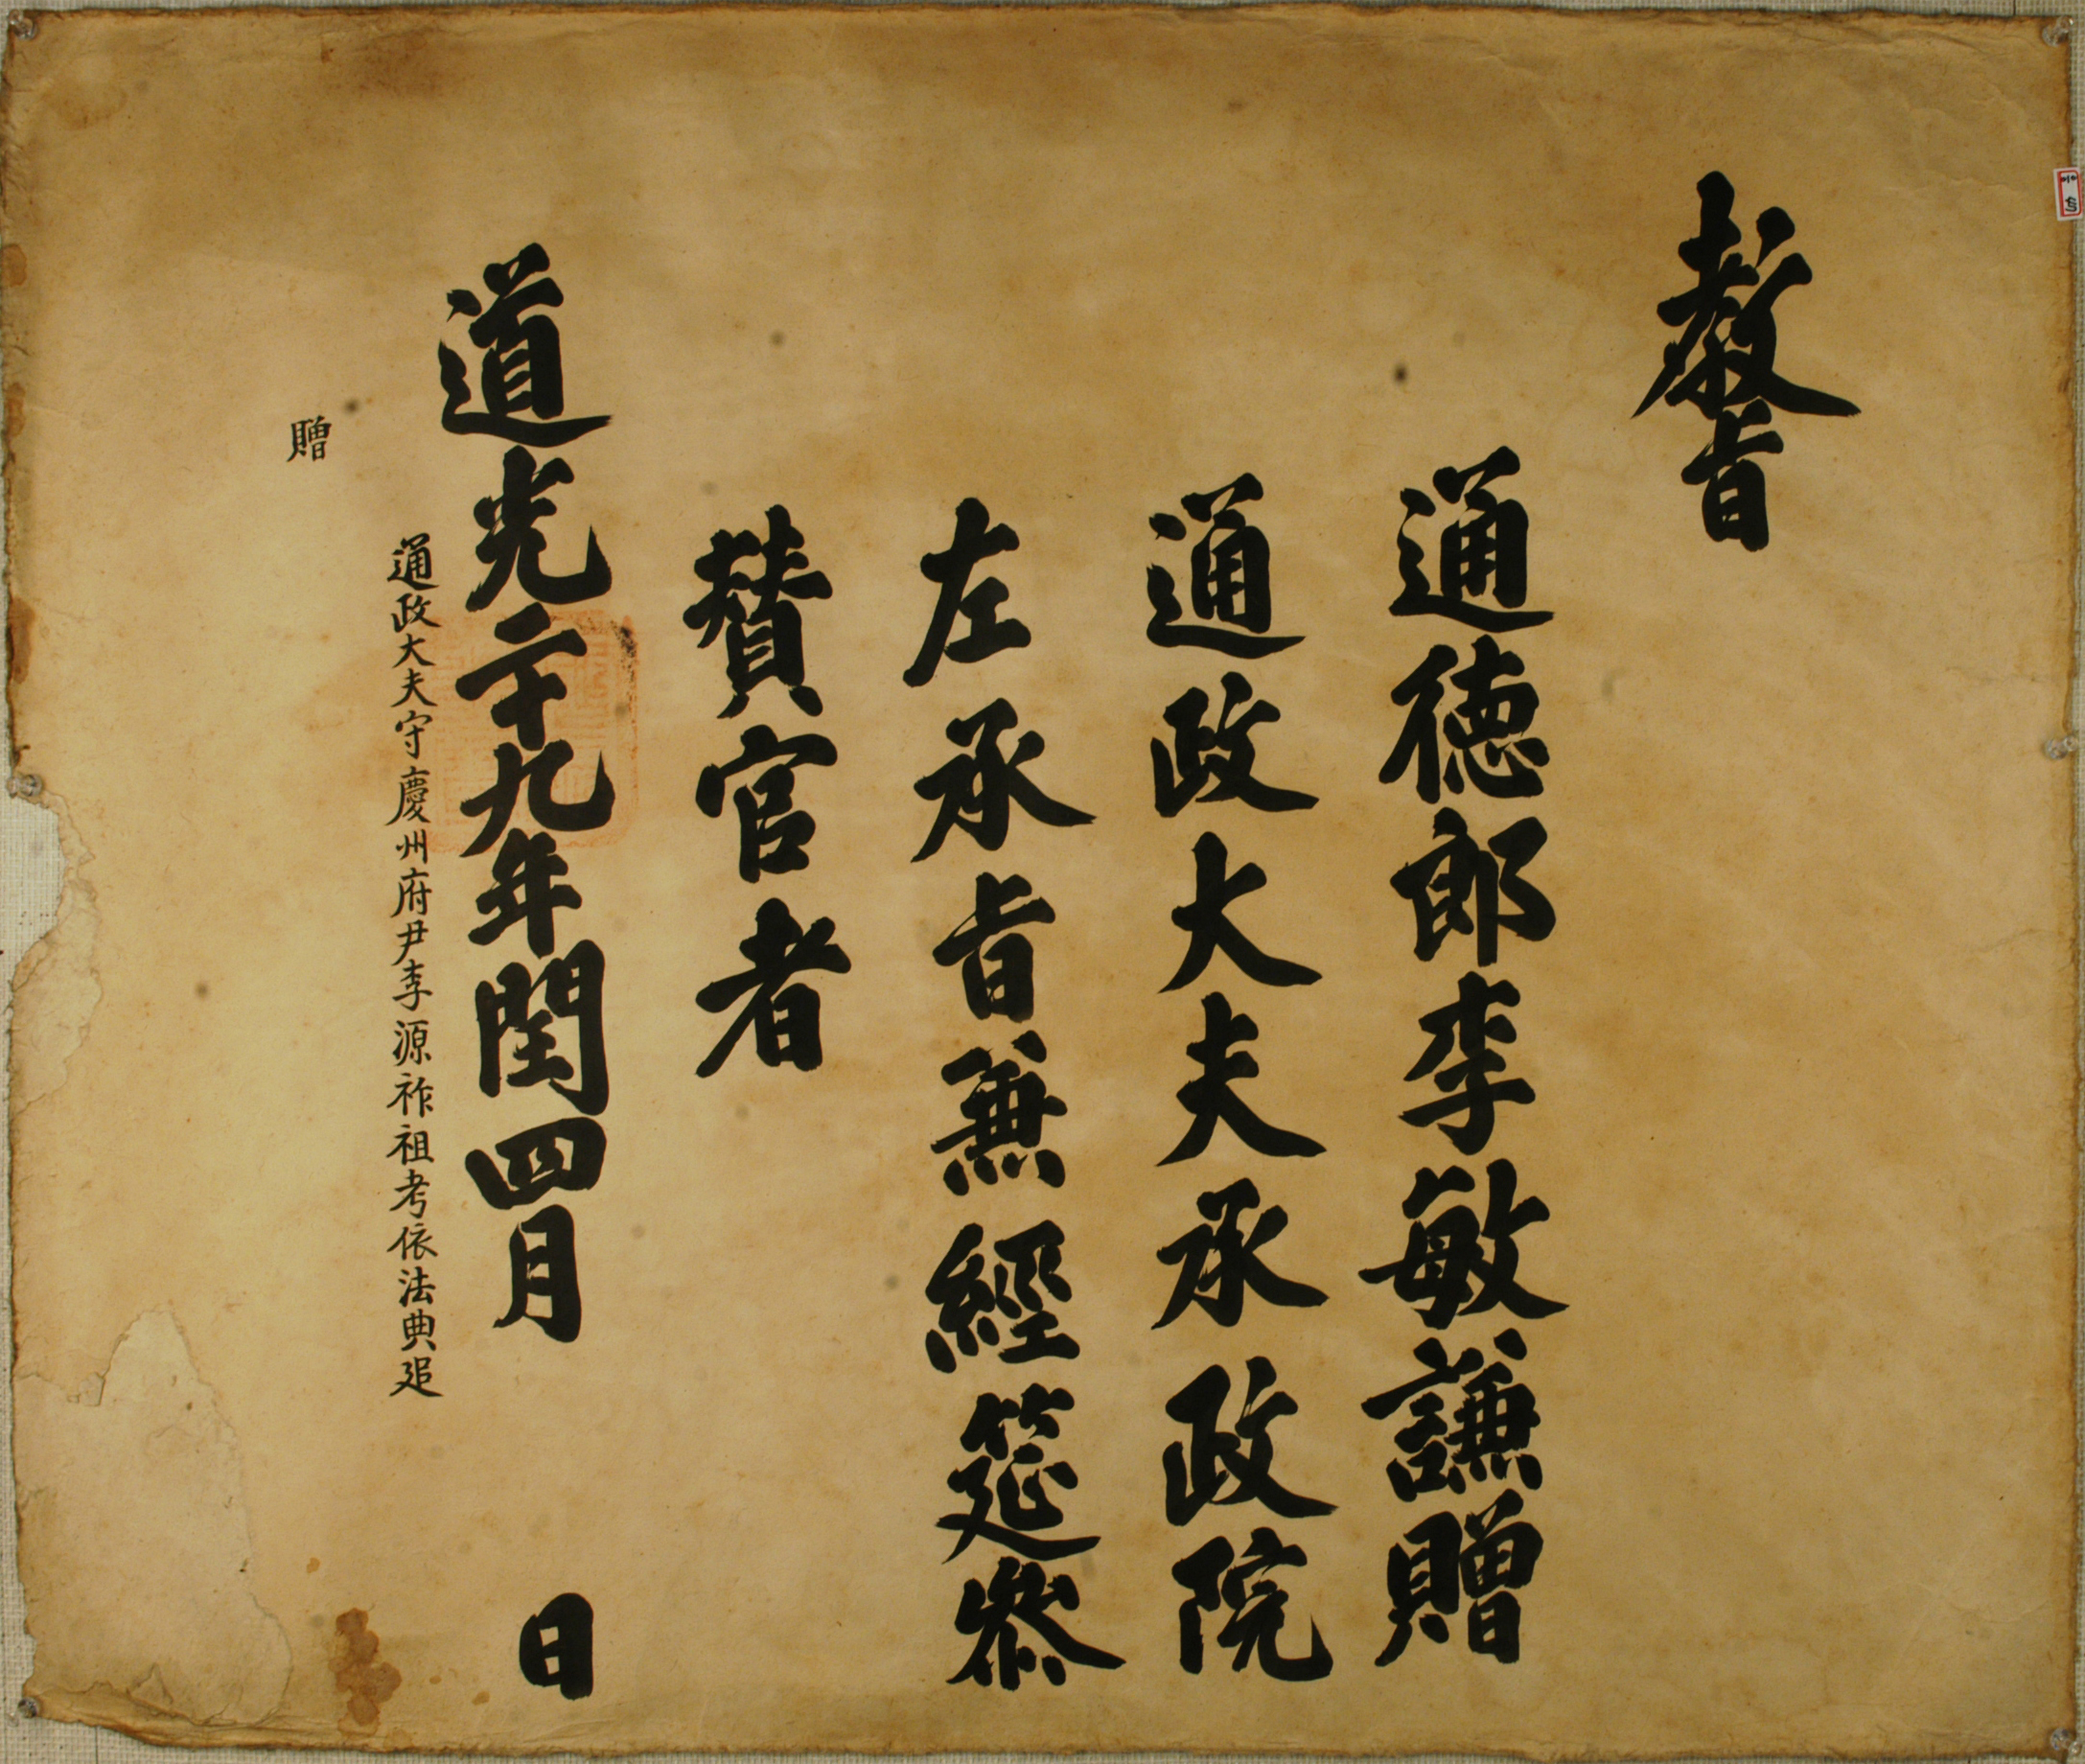 敎旨
通徳郎李敏謙贈
通政大夫承政院
左承旨兼經筵叅
賛官者
道光二十九年閏四月 日
通政大夫守慶州府尹李源祚祖考依法典追
贈